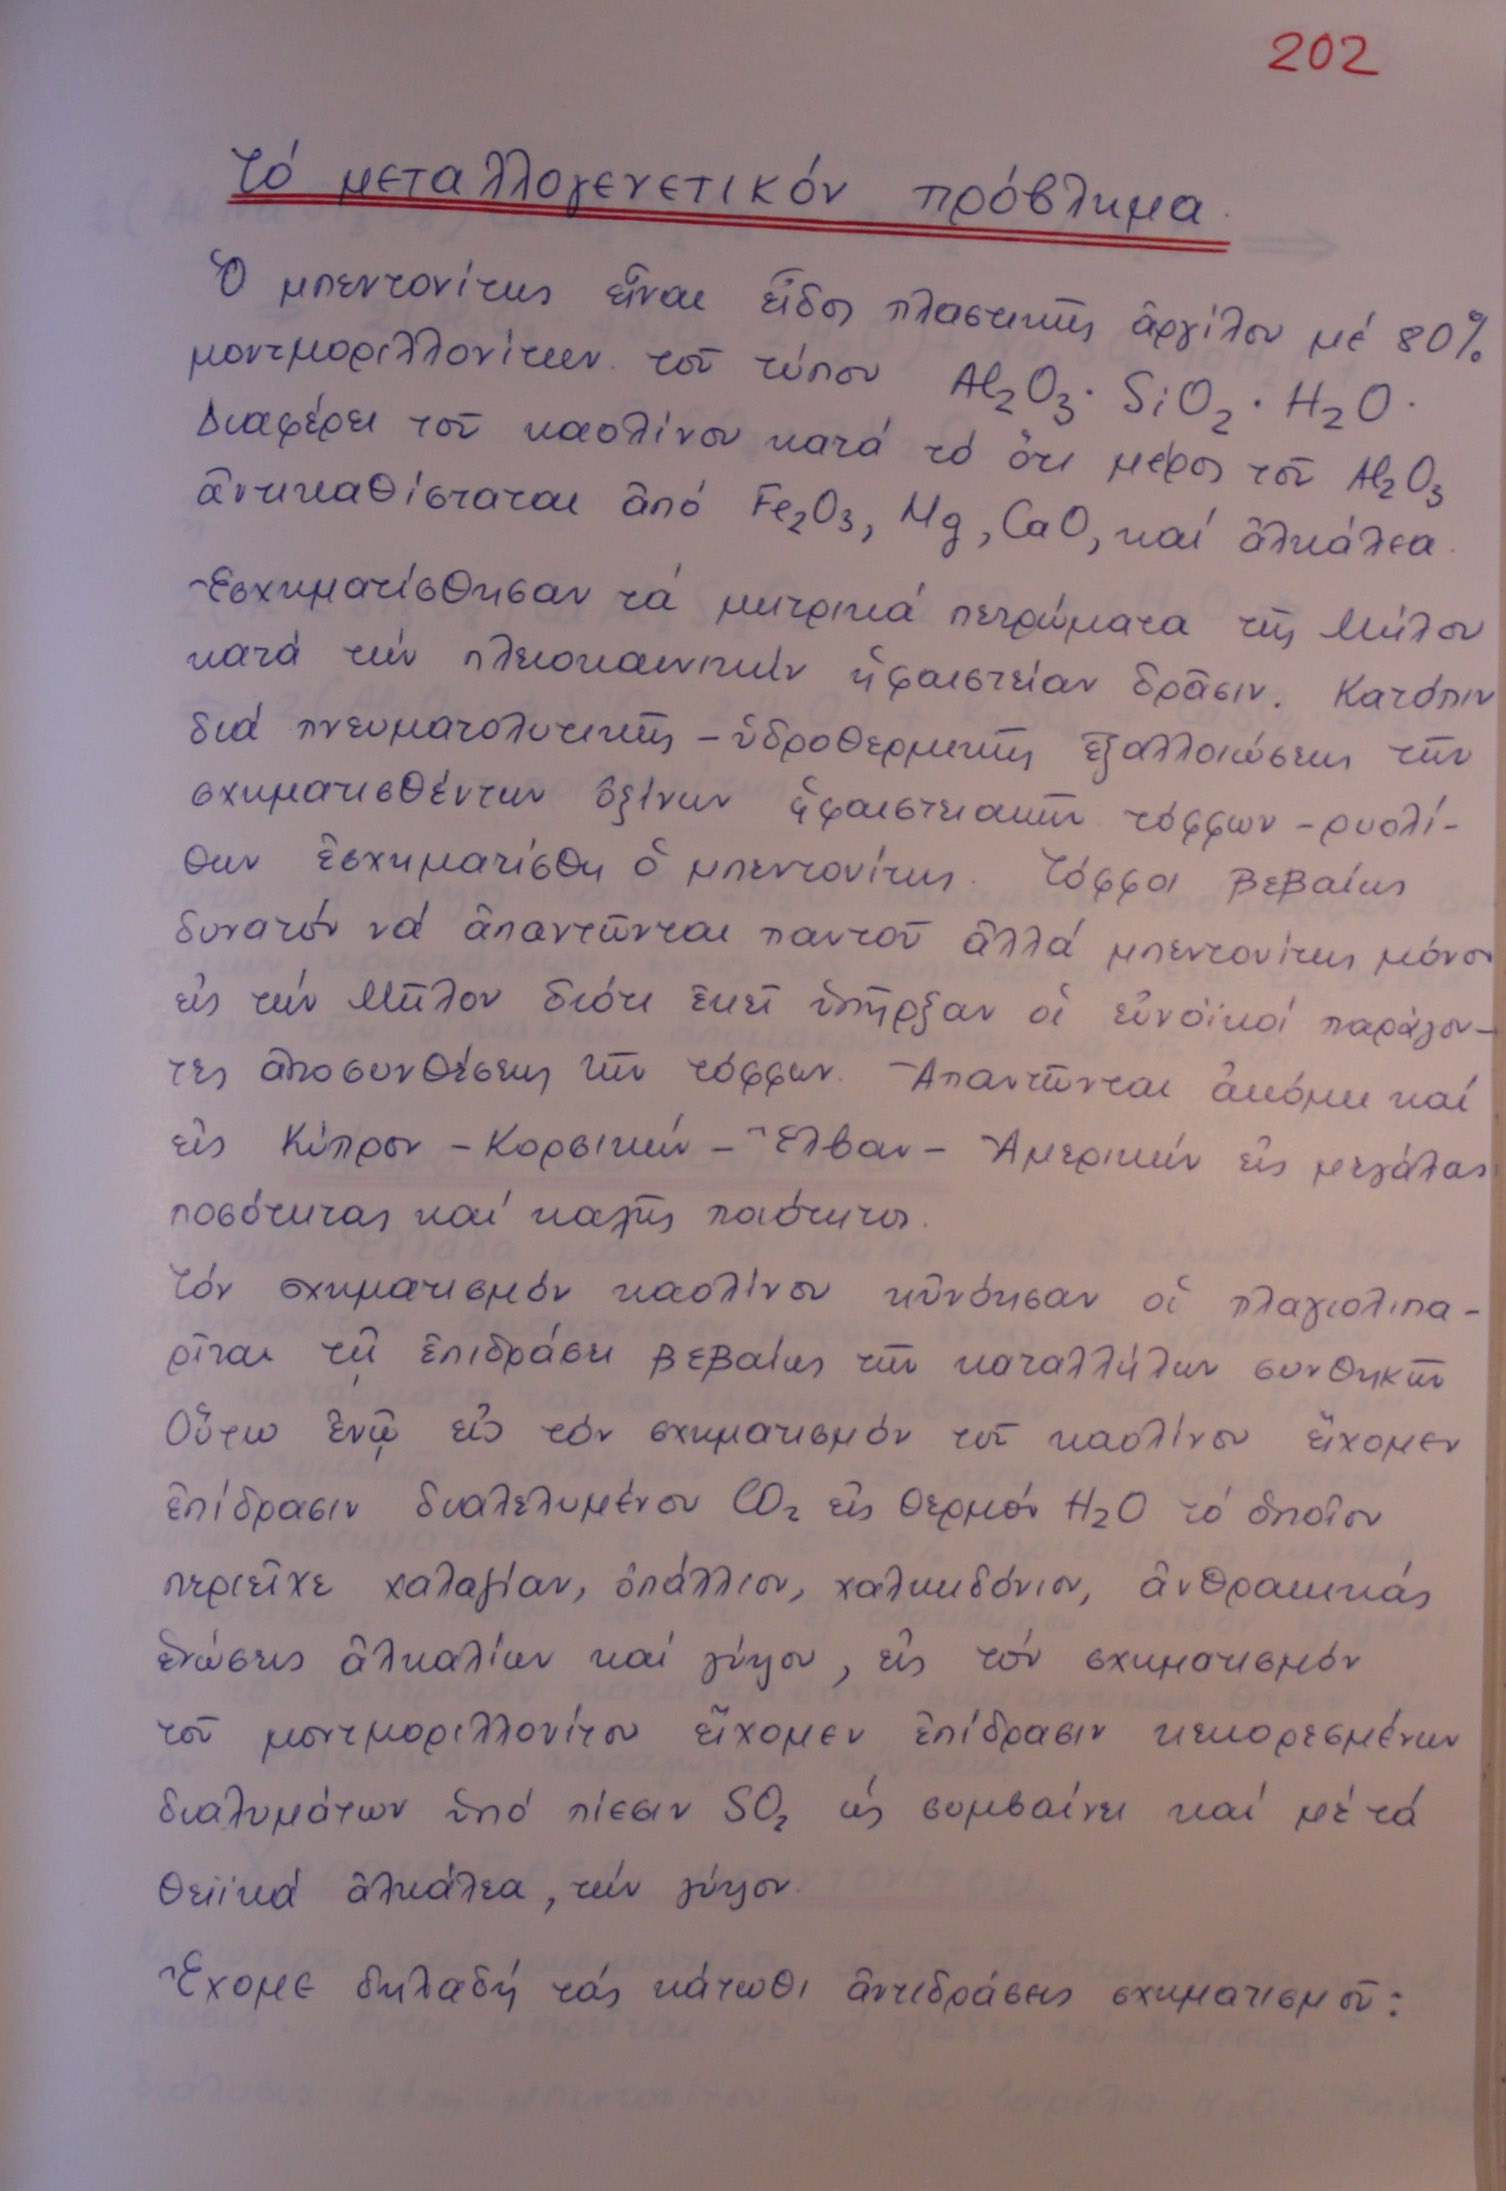 202
Τό μεταλλογενετικόν πρόβλημα.
Ὁ μπεντονίτης εἶναι εἶδος πλαστικῆς ἀργίλου μέ 80%
μοντμοριλλονίτην τοῦ τύπου Al₂O₃ · SiO₂ · H₂O.
Διαφέρει τοῦ καολίνου κατά τό ὅτι μέρος τοῦ Al₂O₃
ἀντικαθίσταται ἀπό Fe₂O₃, Mg, CaO, καί ἀλκάλεα.
Ἐσχηματίσθησαν τά μητρικά πετρώματα τῆς Μήλου
κατά τήν πλειοκαινικήν ἡφαιστείαν δρᾶσιν. Κατόπιν
διά πνευματολυτικῆς - ὑδροθερμικῆς ἐξαλλοιώσεως τῶν
σχηματισθέντων ὀξίνων ἡφαιστειακῶν τόφφων - ρυολί-
θων ἐσχηματίσθη ὁ μπεντονίτης. Τόφφοι βεβαίως
δυνατόν νά ἀπαντῶνται παντοῦ ἀλλά μπεντονίτης μόνον
εἰς τήν Μῆλον διότι ἐκεῖ ὑπῆρξαν οἱ εὐνοϊκοί παράγον-
τες ἀποσυνθέσεως τῶν τόφφων. Ἀπαντῶνται ἀκόμη καί
εἰς Κύπρον - Κορσικήν - Ἔλβαν - Ἀμερικήν εἰς μεγάλας
ποσότητας καί καλῆς ποιότητος.
Τόν σχηματισμόν καολίνου ηὐνόησαν οἱ πλαγιολιπα-
ρῖται τῇ ἐπιδράσει βεβαίως τῶν καταλλήλων συνθηκῶν
Οὕτω ἐνῷ εἰς τόν σχηματισμόν τοῦ καολίνου εἴχομεν
ἐπίδρασιν διαλελυμένου CO₂ εἰς θερμόν H₂O τό ὁποῖον
περιεῖχε χαλαζίαν, ὀπάλλιον, χαλκηδόνιον, ἀνθρακικάς
ἑνώσεις ἀλκαλίων καί γύψου, εἰς τόν σχηματισμόν
τοῦ μοντμοριλλονίτου εἴχομεν ἐπίδρασιν κεκορεσμένων
διαλυμάτων ὑπό πίεσιν SO₂ ὡς συμβαίνει καί μέ τά
θειϊκά ἀλκάλεα, τήν γύψον.
Ἔχομε δηλαδή τάς κάτωθι ἀντιδράσεις σχηματισμοῦ: